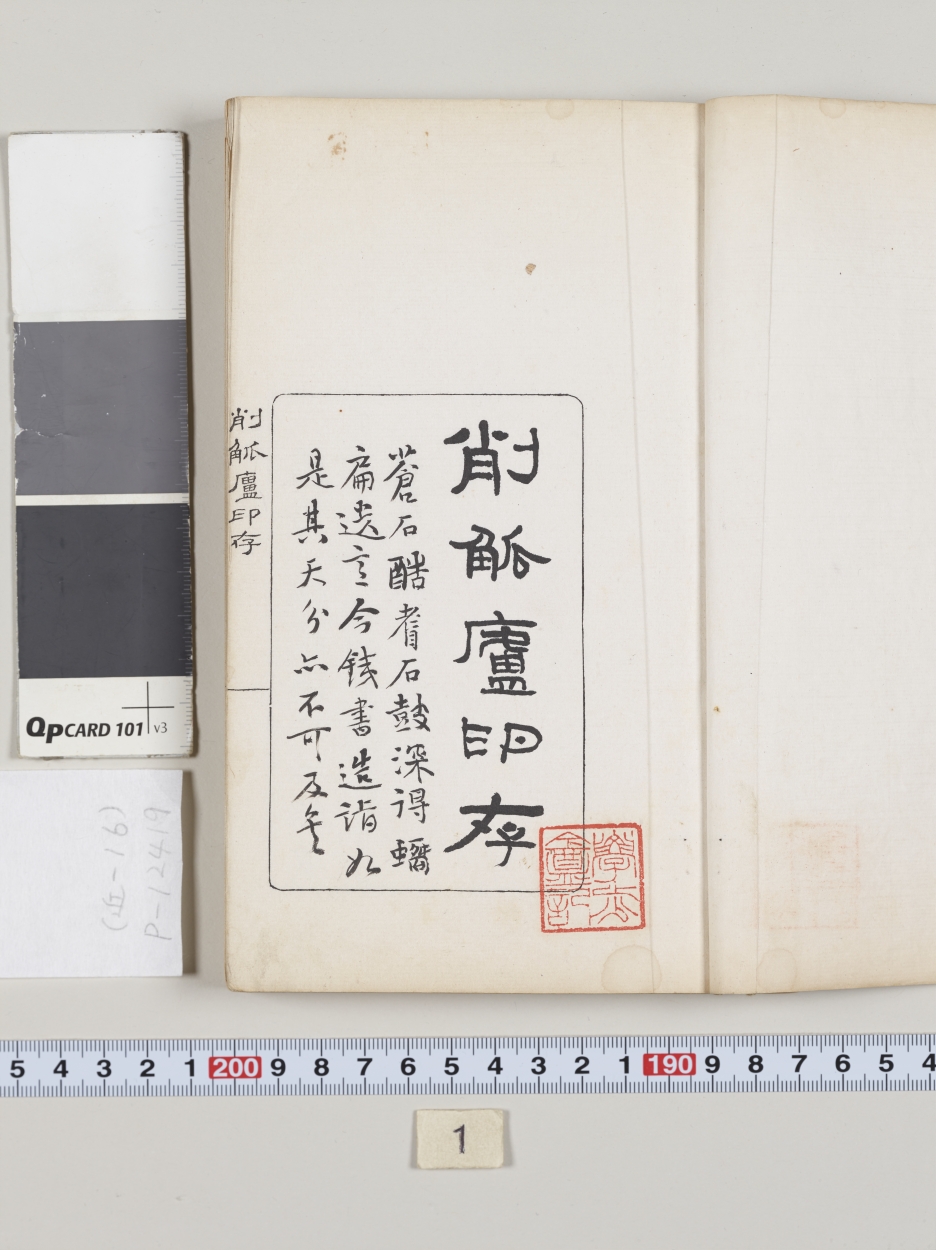 削觚廬印存
蒼石酷耆石鼓深得蟠
扁遺意今錢書造詣如
是其天分亦不可及矣
削觚廬印存
QPCARD 101 v3
(近-16)
P-12419
5 4 3 2 1 200 9 8 7 6 5 4 3 2 1 190 9 8 7 6 5 4
1